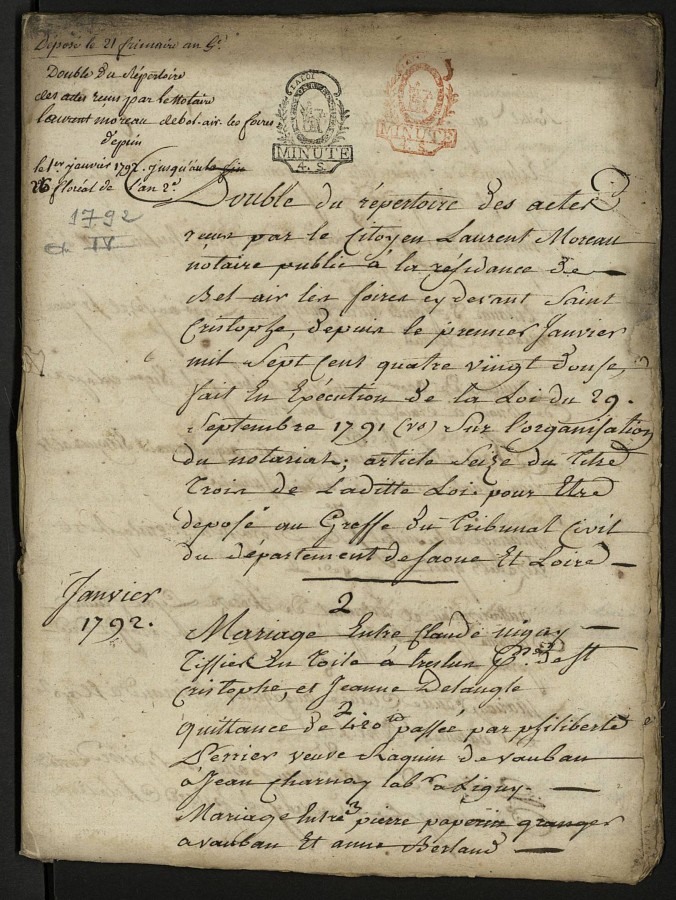 Déposé le 21 frimaire an 6e
Double du Répertoire
des actes reçus par le Notaire
Laurent moreau de bel-air-les foires
depuis
le 1er janvier 1792. jusqu'au
26 floréal de l'an 2e
1792
LA LOI
MINUTE
4. S.
MINUTE
4. S.
Double du répertoire des actes
reçus par le Citoyen Laurent Moreau
nótaire public à la résidance de
Bel air les foires cydevant Saint
Cristophe, depuis le premier Janvier
mil Sept Cent quatre vingt douse,
fait En Exécution de la Loi du 29.
Septembre 1791 (vs) Sur l'organisation
du notariat; article Seize du Titre
Trois de Laditte Loi pour Etre
deposé au Greffe du Tribunal Civil
du département de Saone Et Loire
Janvier
1792.
2
Mariage Entre Claude nigay
Tissier En Toile à de St
Cristophe, et Jeanne Delangle
2
quittance de 420 passée par philiberte
Perrier veuve Raquin de vauban
a Jean Charnay labr a Ligny
3
Mariage Entre pierre granger
a vauban Et anne Berland